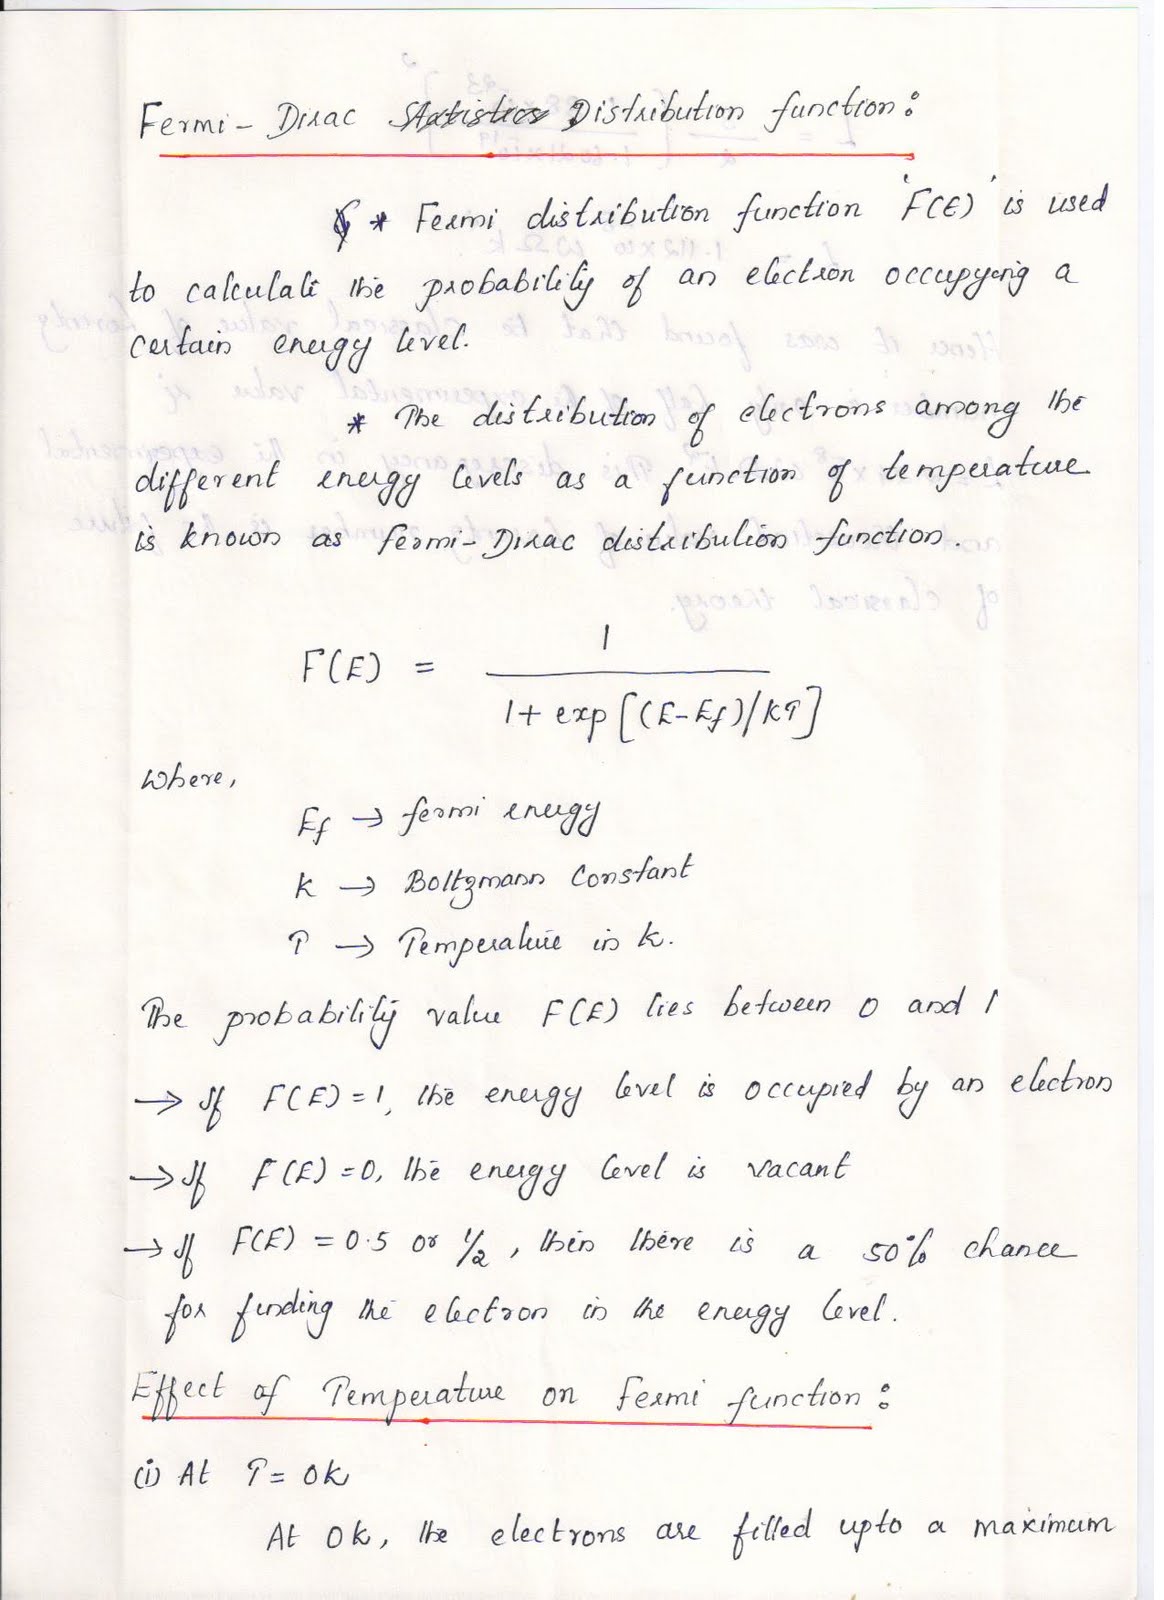 Fermi - Dirac Statistics Distribution function:
* Fermi distribution function 'F(E)' is used
to calculate the probability of an electron occupying a
certain energy level.
* The distribution of electrons among the
different energy levels as a function of temperature
is known as fermi-Dirac distribution function.
F(E) = 1
1+ exp [(E-Ef)/kT]
where,
Ef → fermi energy
k → Boltzmann Constant
T → Temperature in k.
The probability value F(E) lies between 0 and 1
→ If F(E) = 1, the energy level is occupied by an electron
→ If F(E) = 0, the energy level is vacant
→ If F(E) = 0.5 or 1/2, then there is a 50% chance
for finding the electron in the energy level.
Effect of Temperature on Fermi function:
(i) At T = 0k
At 0k, the electrons are filled upto a maximum